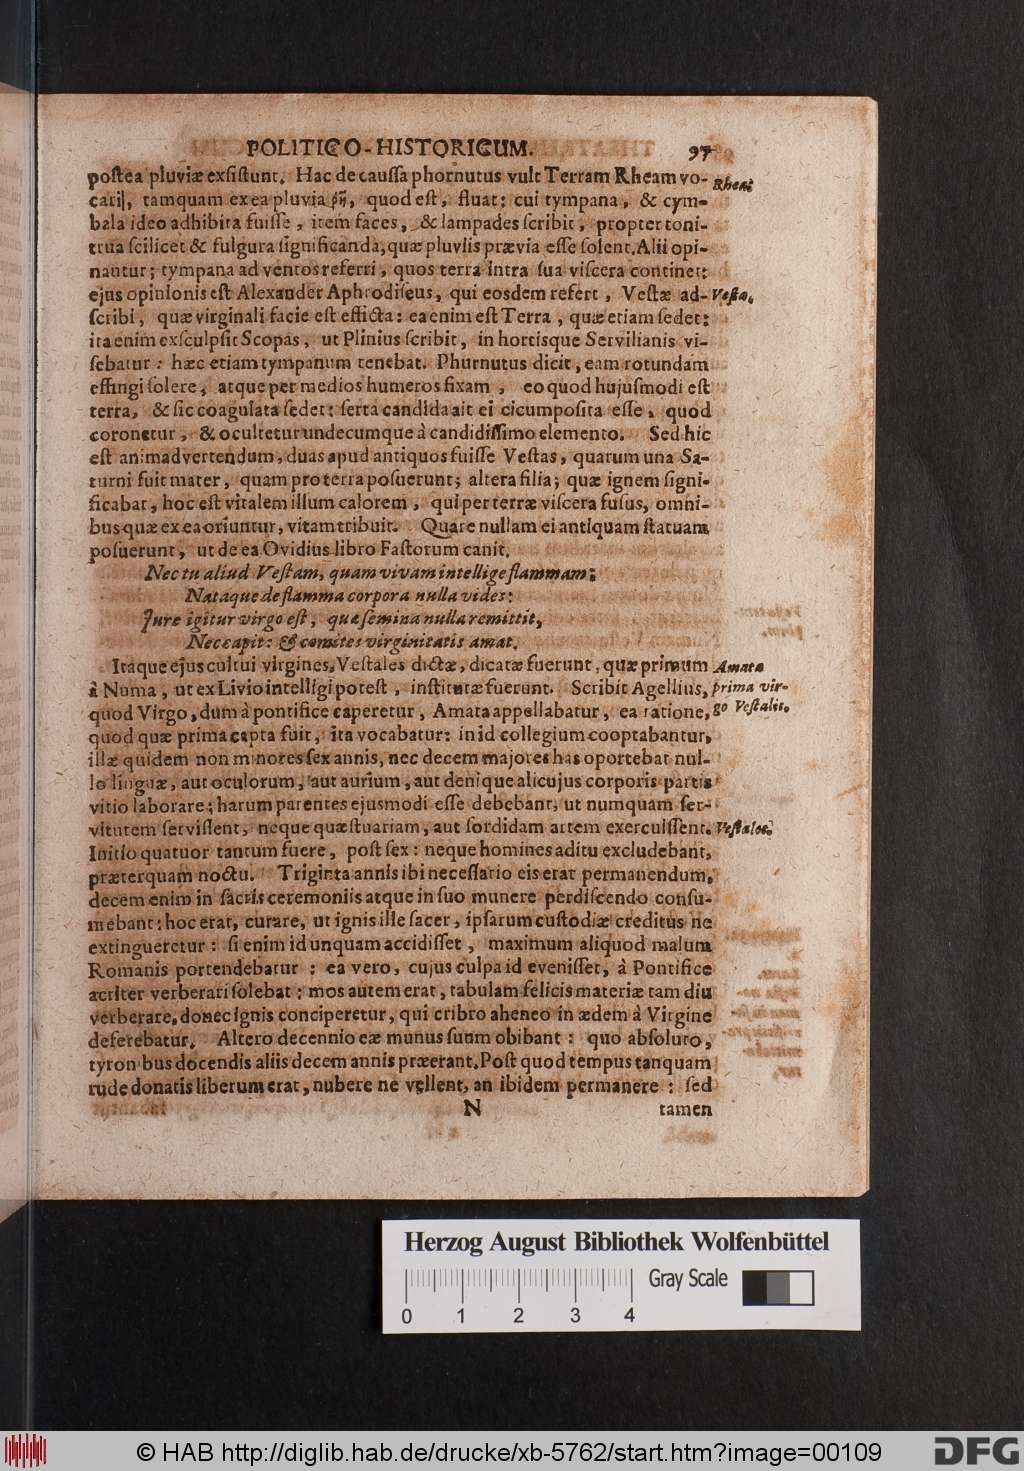 POLITICO-HISTORICUM. 97
poſtea pluviæ exſiſtunt. Hac de cauſſa phornutus vult Terram Rheam vo- Rhea.
cari, tamquam ex ea pluvia ῥῇ, quod eſt, fluat: cui tympana, & cym-
bala ideo adhibita fuiſſe, item faces, & lampades ſcribit, propter toni-
trua ſcilicet & fulgura ſignificanda, quæ pluviis prævia eſſe ſolent. Alii opi-
nantur; tympana ad ventos referri, quos terra intra ſua viſcera continet:
ejus opinionis eſt Alexander Aphrodiſeus, qui eosdem refert, Veſtæ ad- Veſta.
ſcribi, quæ virginali facie eſt efficta: ea enim eſt Terra, quæ etiam ſedet:
ita enim exſculpſit Scopas, ut Plinius ſcribit, in hortisque Servilianis vi-
ſebatur: hæc etiam tympanum tenebat. Phurnutus dicit, eam rotundam
effingi ſolere, atque per medios humeros fixam, eo quod hujuſmodi eſt
terra, & ſic coagulata ſedet: ſerta candida ait ei cicumpoſita eſſe, quod
coronetur, & ocultetur undecumque à candidiſſimo elemento. Sed hic
eſt animadvertendum, duas apud antiquos fuiſſe Veſtas, quarum una Sa-
turni fuit mater, quam pro terra poſuerunt; altera filia; quæ ignem ſigni-
ficabat, hoc eſt vitalem illum calorem, qui per terræ viſcera fuſus, omni-
bus quæ ex ea oriuntur, vitam tribuit. Quare nullam ei antiquam ſtatuam
poſuerunt, ut de ea Ovidius libro Faſtorum canit.
Nec tu aliud Veſtam, quam vivam intellige flammam;
Nataque de flamma corpora nulla vides:
Jure igitur virgo eſt, quæ ſemina nulla remittit,
Nec capit: & comites virginitatis amat.
Itaque ejus cultui virgines, Veſtales dictæ, dicatæ fuerunt, quæ primum Amata
à Numa, ut ex Livio intelligi poteſt, inſtitutæ fuerunt. Scribit Agellius, prima vir-
quod Virgo, dum à pontifice caperetur, Amata appellabatur, ea ratione, go Veſtalis.
quod quæ prima capta fuit, ita vocabatur: in id collegium cooptabantur,
illæ quidem non minores ſex annis, nec decem majores has oportebat nul-
lo linguæ, aut oculorum, aut aurium, aut denique alicujus corporis partis
vitio laborare; harum parentes ejusmodi eſſe debebant, ut numquam ſer-
vitutem ſerviſſent, neque quæſtuariam, aut ſordidam artem exercuiſſent. Veſtales.
Initio quatuor tantum fuere, poſt ſex: neque homines aditu excludebant,
præterquam noctu. Triginta annis ibi neceſſario eis erat permanendum,
decem enim in ſacris ceremoniis atque in ſuo munere perdiſcendo conſu-
mebant: hoc erat, curare, ut ignis ille ſacer, ipſarum cuſtodiæ creditus ne
extingueretur: ſi enim id unquam accidiſſet, maximum aliquod malum
Romanis portendebatur: ea vero, cujus culpa id eveniſſet, à Pontifice
acriter verberari ſolebat: mos autem erat, tabulam felicis materiæ tam diu
verberare, donec ignis conciperetur, qui cribro aheneo in ædem à Virgine
deferebatur. Altero decennio eæ munus ſuum obibant: quo abſoluto,
tyronibus docendis aliis decem annis præerant. Poſt quod tempus tanquam
rude donatis liberum erat, nubere ne vellent, an ibidem permanere: ſed
N tamen
Herzog August Bibliothek Wolfenbüttel
Gray Scale
0 1 2 3 4
© HAB http://diglib.hab.de/drucke/xb-5762/start.htm?image=00109
DFG